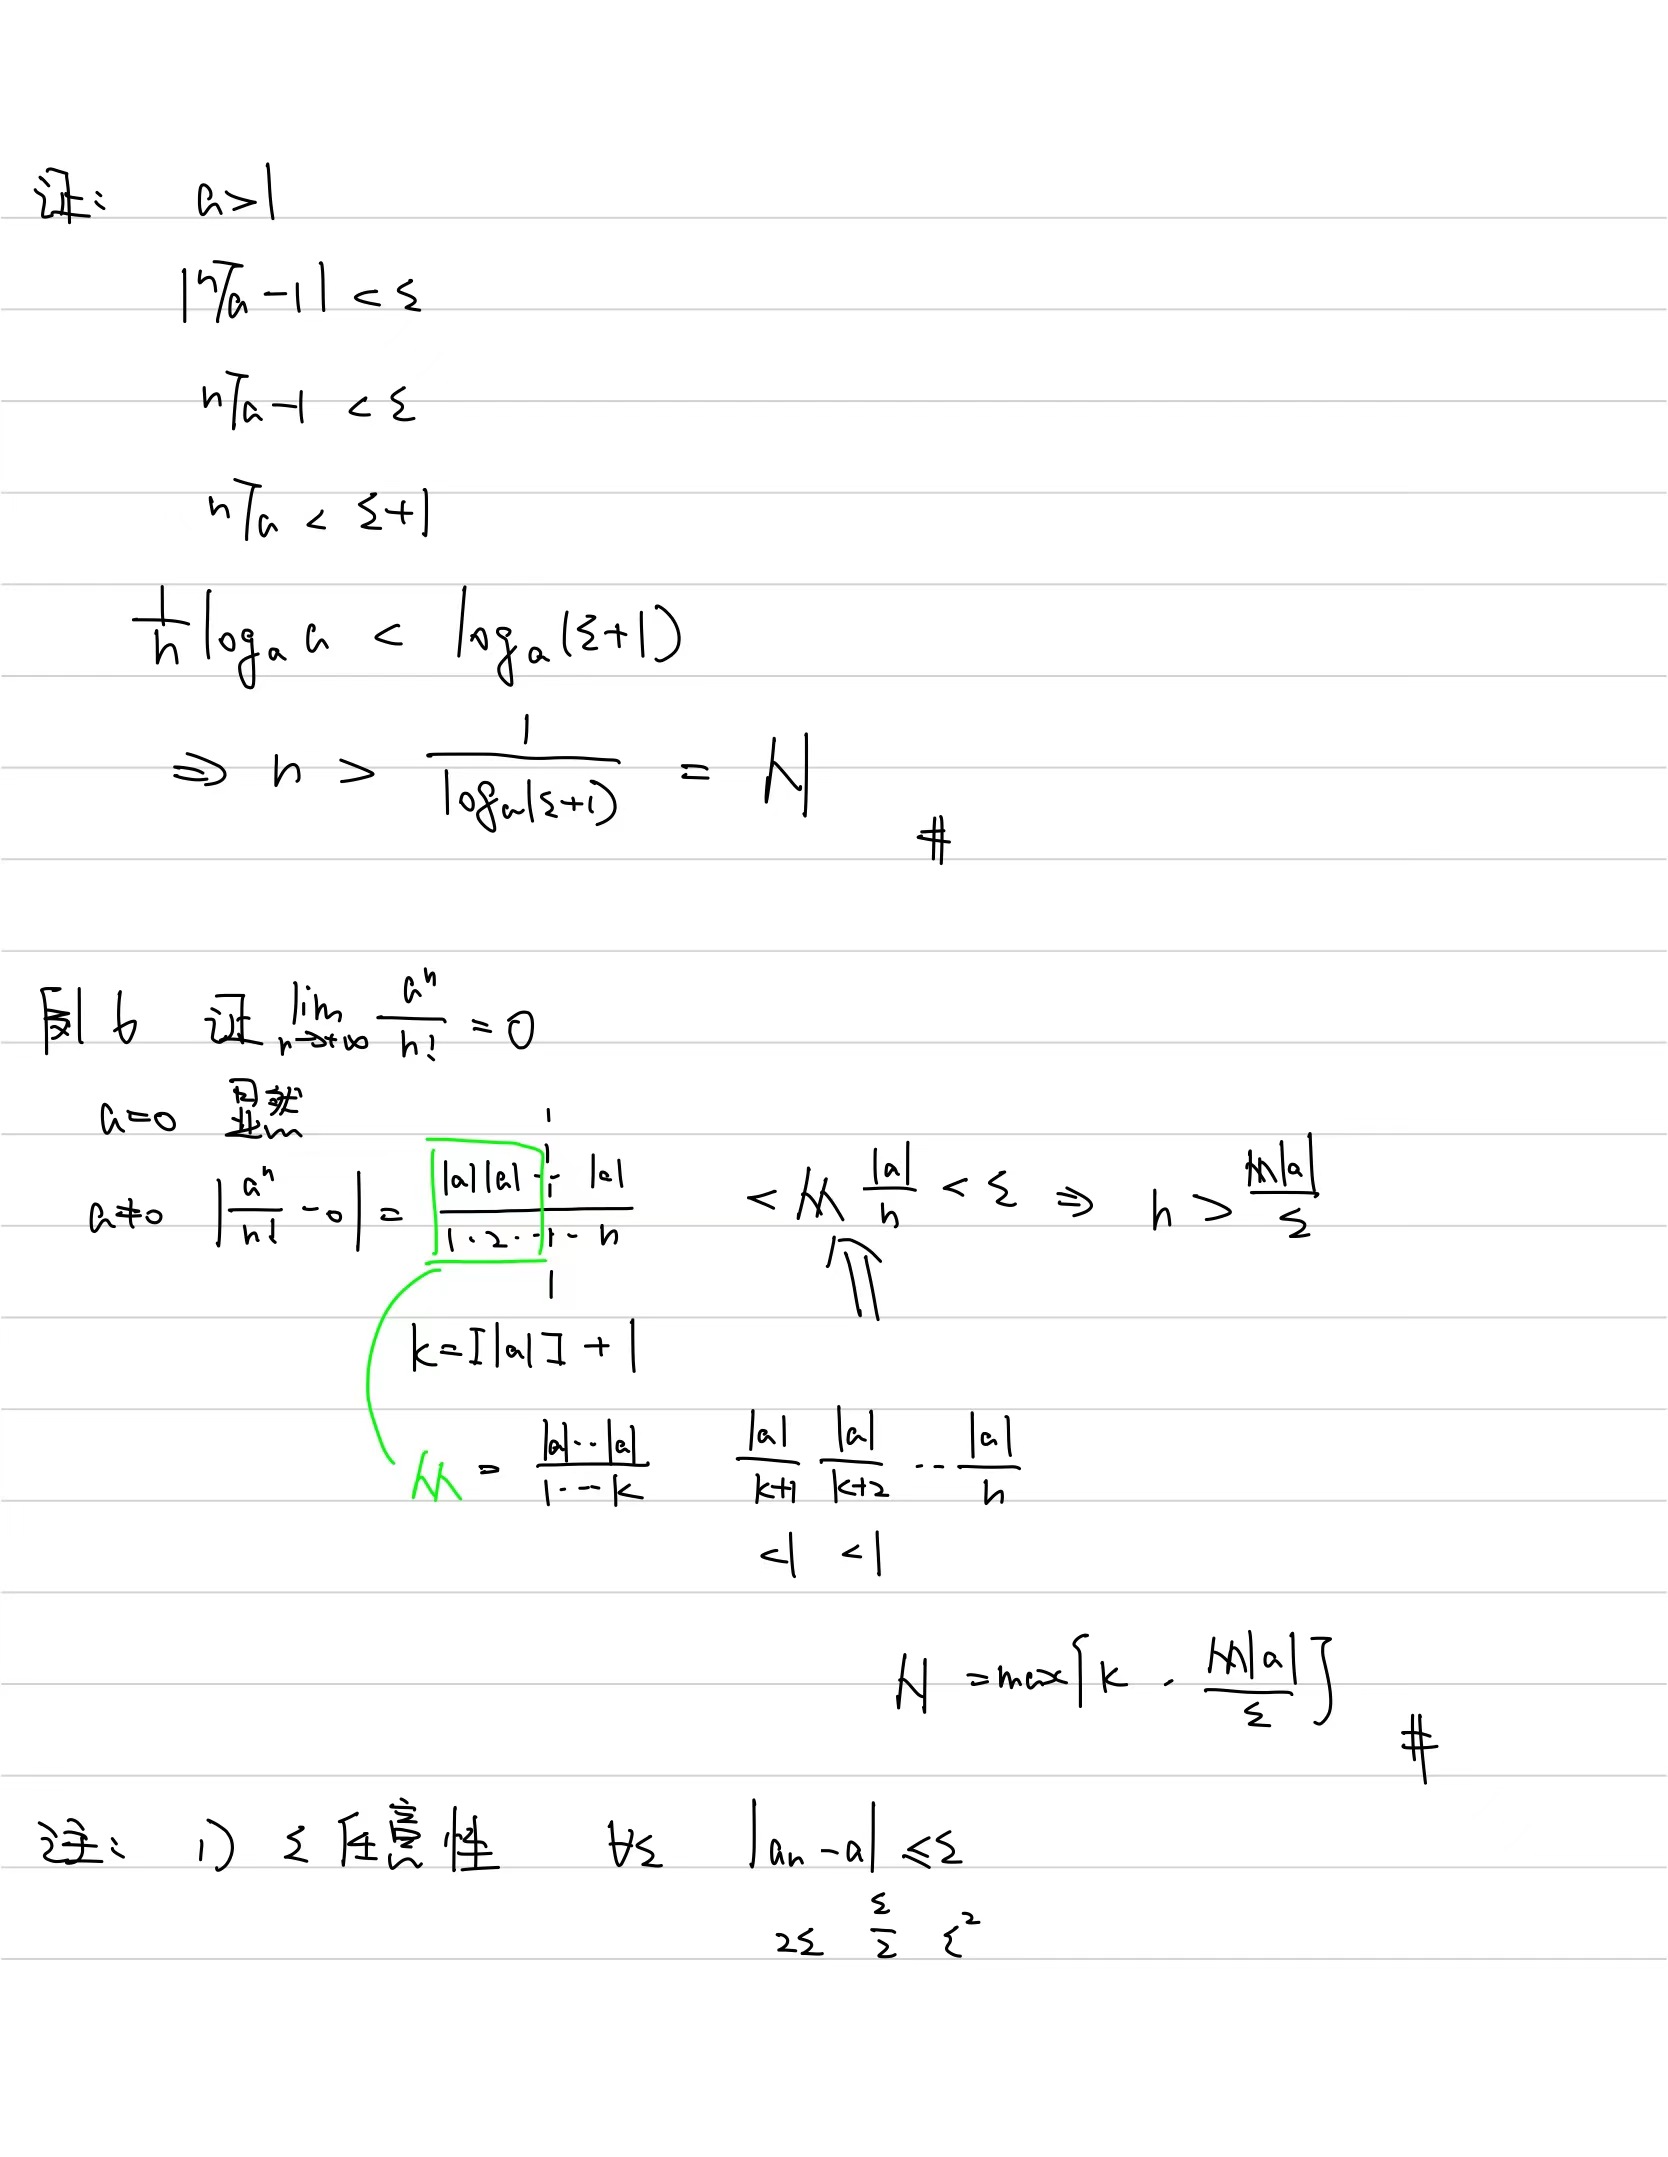 证: a>1
|ⁿ√a -1| < ε
ⁿ√a -1 < ε
ⁿ√a < ε+1
1/n logₐ a < logₐ(ε+1)
⇒ n > 1/logₐ(ε+1) = N
#
例6 证 lim n→+∞ aⁿ/n! = 0
a=0 显然
a≠0 |aⁿ/n! - 0| = |a||a|···|a| / 1·2···n < M |a|/n < ε ⇒ n > M|a|/ε
k=[|a|]+1
M = |a|···|a| / 1···k |a|/k+1 |a|/k+2 ··· |a|/n
<1 <1
N = max{k . M|a|/ε}
#
注: 1) ε任意性 ∀ε |aₙ-a| ≤ε
2ε ε/2 ε²